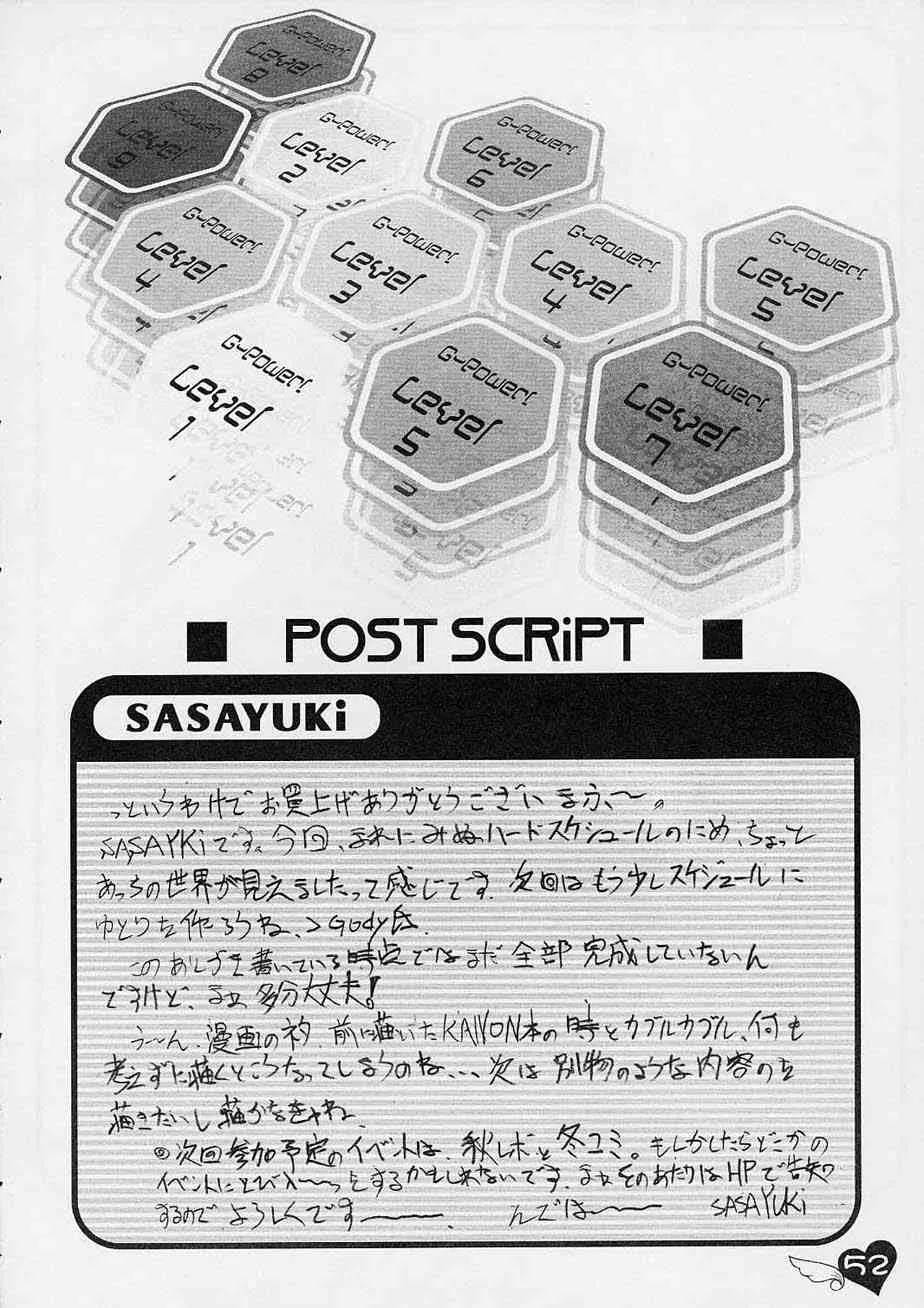 G-Power!
Level
8
G-Power!
Level
9
G-Power!
Level
2
G-Power!
Level
6
G-Power!
Level
4
G-Power!
Level
3
G-Power!
Level
4
G-Power!
Level
5
G-Power!
Level
1
G-Power!
Level
5
G-Power!
Level
7
■ POST SCRiPT ■
SASAYUKi
っというわけでお買上げありがとうございまふ〜。
SASAYKiです。今回、まれにみぬハードスケジュールのため、ちょっと
あっちの世界が見えましたって感じです。次回はもう少しスケジュールに
ゆとりを作ろうね、>Gody氏.
このあとがきを書いている時点ではまだ全部完成していないん
ですけど、まぁ多分大丈夫!
う〜ん、漫画のネタ、前に描いたKANON本の時とカブルカブル、何も
考えずに描くとこうなってしまうのね、、、次は別物のような内容のを
描きたいし描かなきゃね、
◎次回参加予定のイベントは、秋レボと冬コミ。もしかしたらどこかの
イベントにとび入〜っとするかもしれないです。まぁそのあたりはHPで告知
するので、よろしくです―――. んでは〜〜 SASAYUKi
52